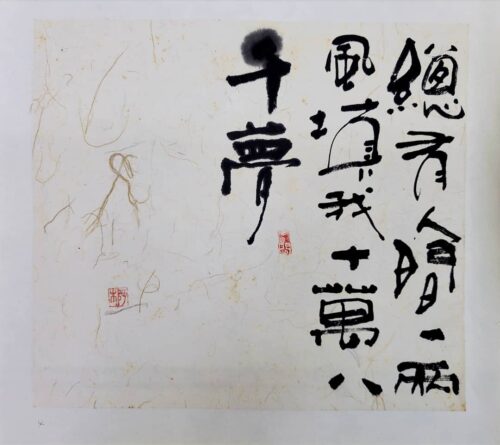 總有人間一兩
風填我十萬八
千夢